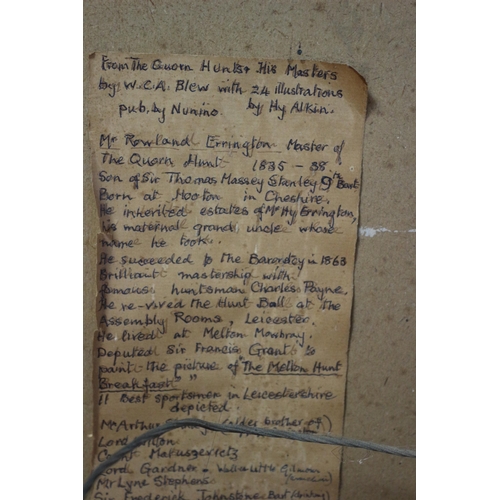 From The Quorn Hunt & His Masters
by W.C.A. Blew with 24 illustrations
pub. by Nimino. by Hy Alkin.
Mr Rowland Errington Master of
The Quorn Hunt 1835 - 38.
Son of Sir Thomas Massey Stanley 9th Bart
Born at Hooton in Cheshire.
He inherited estates of Mr Hy Errington,
his maternal grand uncle whose
name he took.
He succeeded to the Baronetcy in 1863
Brilliant mastership with
famous huntsman Charles Payne.
He re-vived the Hunt Ball at the
Assembly Rooms, Leicester.
He lived at Melton Mowbray.
Deputed Sir Francis Grant to
paint the picture of "The Melton Hunt
Breakfast"
11 Best sportsmen in Leicestershire
depicted.
Mr Arthur brother of)
Lord
Count Matuszevictz
Lord Gardner -
Mr Lyne Stephens
Sir Frederick Johnstone Bart